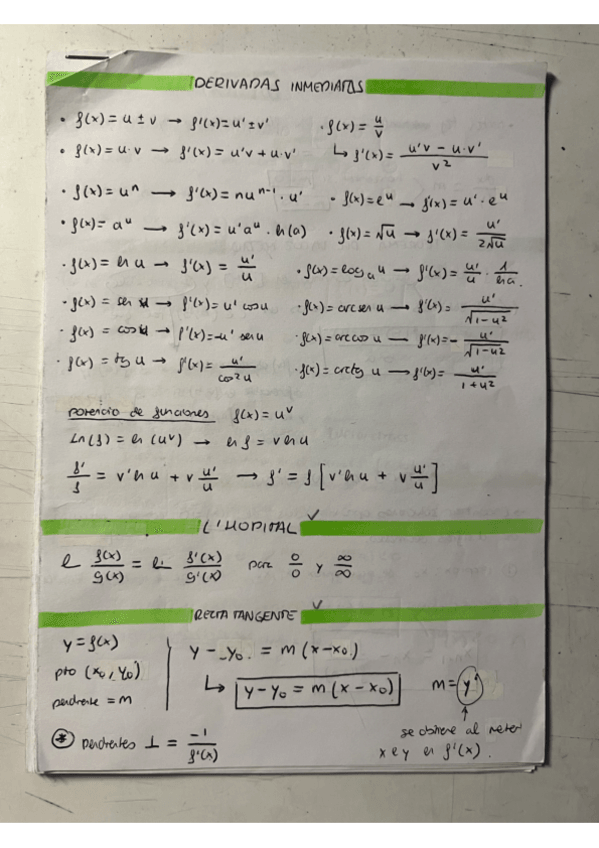 DERIVADAS INMEDIATAS
• f(x) = u ± v → f'(x) = u' ± v'
• f(x) = u/v
↳ f'(x) = (u'v - u·v')/v²
• f(x) = u·v → f'(x) = u'v + u·v'
• f(x) = uⁿ → f'(x) = nuⁿ⁻¹ · u'
• f(x) = eᵘ → f'(x) = u' · eᵘ
• f(x) = aᵘ → f'(x) = u'aᵘ · ln(a)
• f(x) = √u → f'(x) = u'/(2√u)
• f(x) = ln u → f'(x) = u'/u
• f(x) = logₐ u → f'(x) = u'/u · 1/ln a
• f(x) = sen u → f'(x) = u' cos u
• f(x) = arcsen u → f'(x) = u'/√(1-u²)
• f(x) = cos u → f'(x) = -u' sen u
• f(x) = arccos u → f'(x) = - u'/√(1-u²)
• f(x) = tg u → f'(x) = u'/cos² u
• f(x) = arctg u → f'(x) = u'/(1+u²)
potencia de funciones f(x) = uᵛ
Ln(f) = ln(uᵛ) → ln f = v ln u
f'/f = v' ln u + v u'/u → f' = f [v' ln u + v u'/u]
L'HOPITAL ✓
l f(x)/g(x) = l. f'(x)/g'(x) para 0/0 y ∞/∞
RECTA TANGENTE ✓
y = f(x)
pto (x₀, y₀)
pendiente = m
y - y₀ = m (x - x₀)
↳ y - y₀ = m (x - x₀)
m = y'
se obtiene al meter
x e y en f'(x).
* pendientes ⊥ = -1/f'(x)